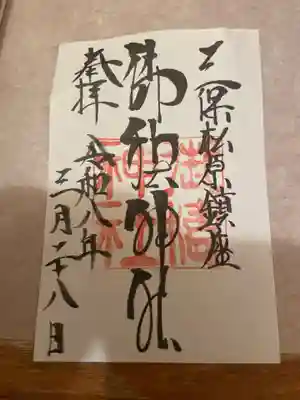 三保松原鎮座
御穂神社
奉拝
令和八年
三月二十八日